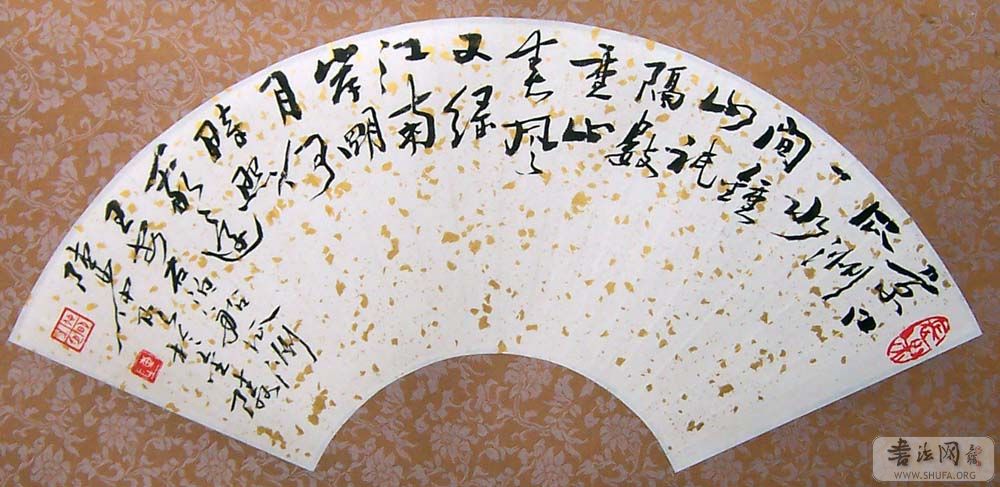 京口
瓜洲
一水
间鐘
山祇
隔數
重山
春风
又绿
江南
岸明
月何
時照
我還
王安石泊船瓜洲
書法网
WWW.SHUFA.ORG